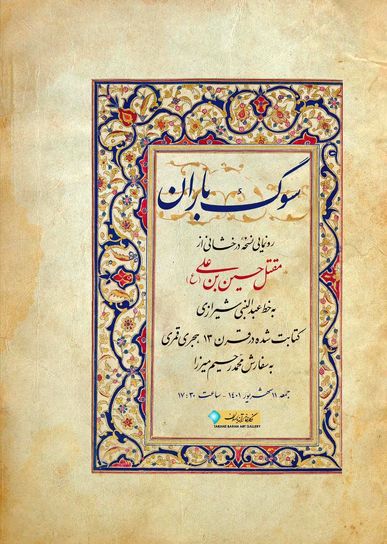 سوگ باران
رونمایی نسخه درخشانی از
مقتل حسین بن علی (ع)
به خط عبدالنبی شیرازی
کتابت شده در قرن ۱۳ هجری قمری
به سفارش محمد رحیم میرزا
جمعه ۱۱ شهریور ۱۴۰۱ - ساعت ۱۷:۳۰
TARANE BARAN ART GALLERY